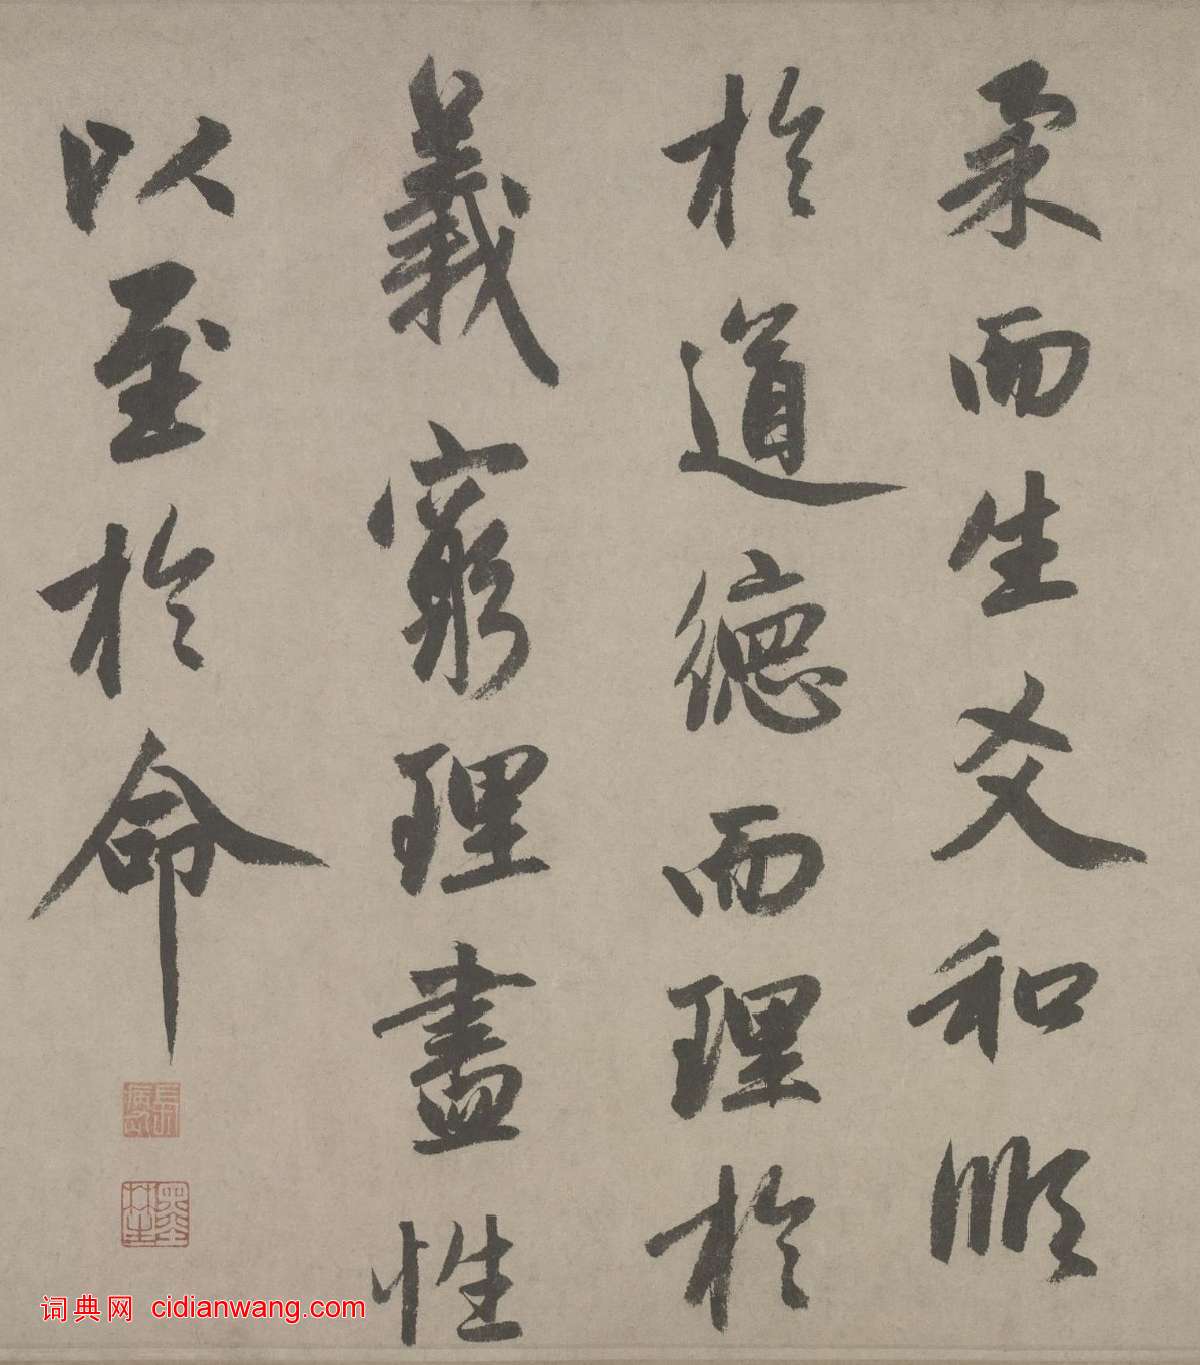 柔而生爻和順
於道德而理於
義窮理盡性
以至於命
词典网 cidianwang.com